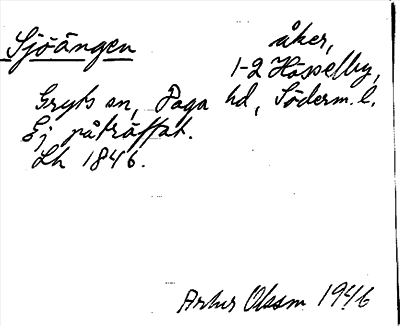 Sjöängen
åker,
1-2 Hässelby,
Gryts sn, Daga hd, Söderm. l.
Ej påträffat.
Lh 1846.
Artur Olsson 1946